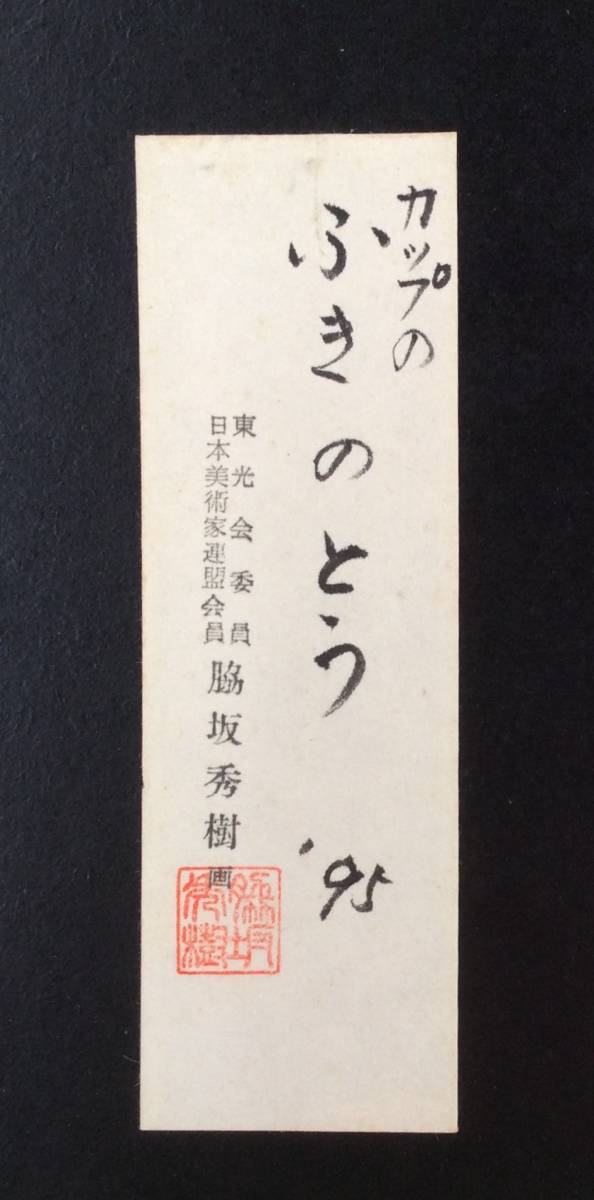 カップの
ふきのとう
'95
東光会委員
日本美術家連盟会員
脇坂秀樹画
脇坂
秀樹